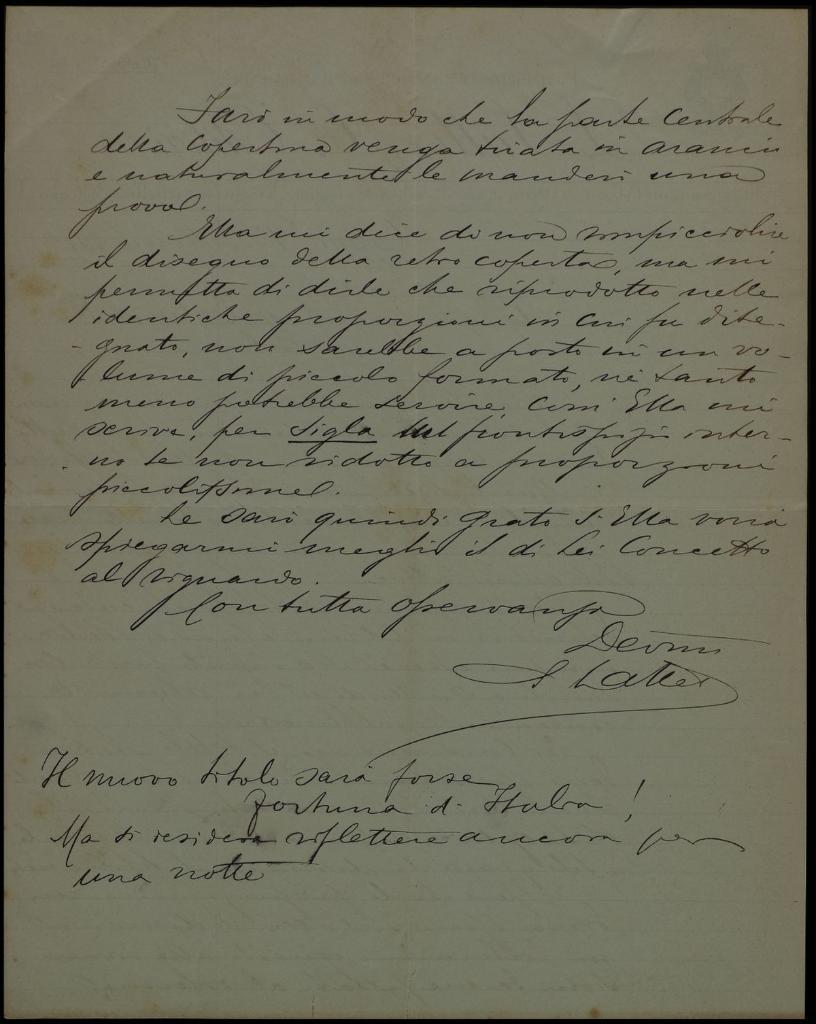 Farò in modo che la parte centrale
della copertina venga tirata in arancio
e naturalmente le manderò una
prova.
Ella mi dice di non rimpicciolire
il disegno della retro coperta, ma mi
permetta di dirle che riprodotto nelle
identiche proporzioni in cui fu dise-
gnato, non sarebbe a posto in un vo-
lume di piccolo formato, nè tanto
meno potrebbe servire, com'Ella mi
scrive, per sigla del frontispizio inter-
no se non ridotto a proporzioni
piccolissime.
Le sarò quindi grato s'Ella vorrà
spiegarmi meglio il di Lei concetto
al riguardo.
Con tutta osservanza
Devmo
S Lattes
Il nuovo titolo sarà forse
Fortuna d'Italia!
Ma si desidera riflettere ancora per
una notte